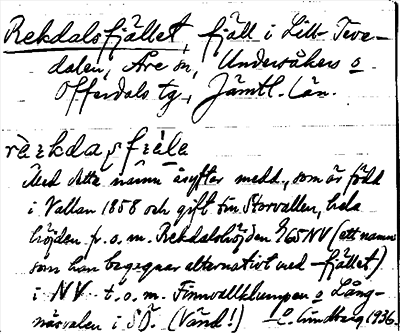 Rekdalsfjället, fjäll i Lill Teve-
dalen, Åre sn, Undersåkers o
Offerdals tg, Jämtl. län.
rä̀rkdasfiäla
Med detta namn åsyftar medd., som är född
i Vallan 1858 och gift i Storvallen, hela
höjden fr. o. m. Rekdalshöjden 965 NV (ett namn
som han begagnar alternativt med -fjället)
i NV t. o. m. Finnvallklumpen o Lång-
näsvalen i SÖ. (Vänd!) Lo Lindberg 1936.